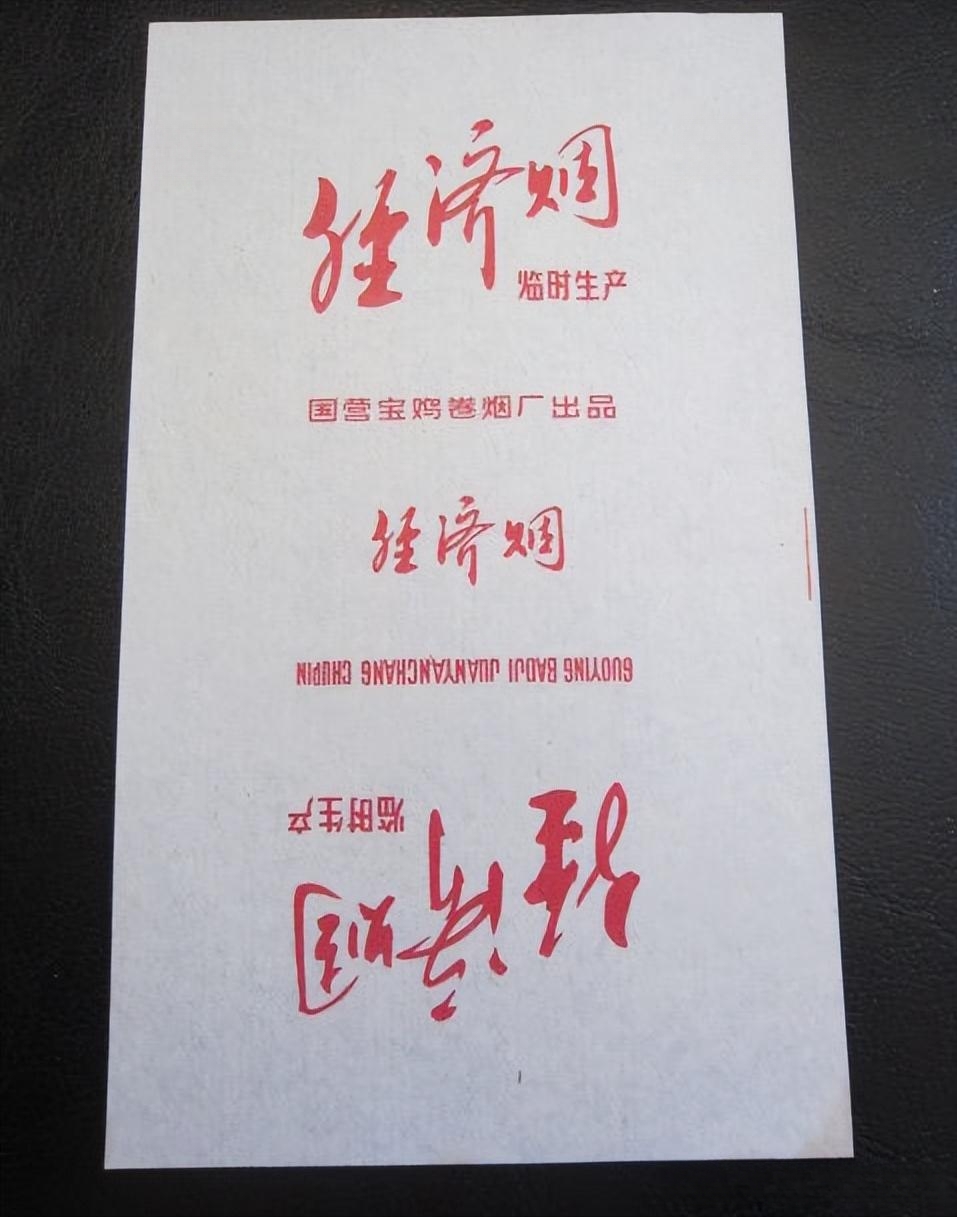 经济烟
临时生产
国营宝鸡卷烟厂出品
经济烟
GUOYING BAOJI JUANYANCHANG CHUPIN
临时生产
经济烟